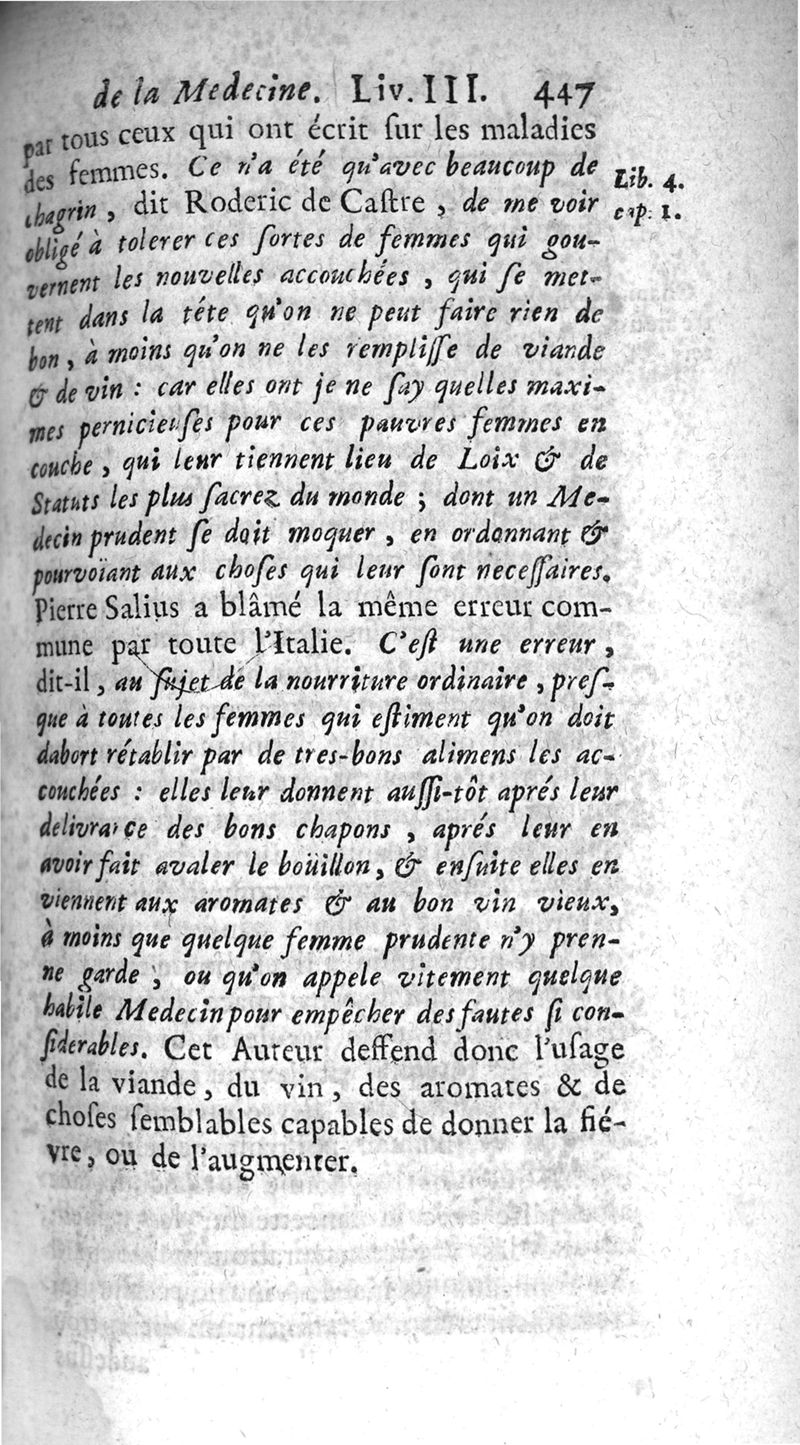 de la Medecine. Liv. III. 447
par tous ceux qui ont écrit ſur les maladies
des femmes. Ce n'a été qu'avec beaucoup de
chagrin, dit Roderic de Caſtre, de me voir
obligé à tolerer ces ſortes de femmes qui gou-
vernent les nouvelles accouchées, qui ſe met-
tent dans la téte qu'on ne peut faire rien de
bon, à moins qu'on ne les rempliſſe de viande
& de vin : car elles ont je ne ſay quelles maxi-
mes pernicieuſes pour ces pauvres femmes en
couche, qui leur tiennent lieu de Loix & de
Statuts les plus ſacrez du monde ; dont un Me-
decin prudent ſe doit moquer, en ordonnant &
pourvoïant aux choſes qui leur ſont neceſſaires.
Pierre Salius a blâmé la même erreur com-
mune par toute l'Italie. C'eſt une erreur,
dit-il, au ſujet de la nourriture ordinaire, preſ-
que à toutes les femmes qui eſtiment qu'on doit
dabort rétablir par de tres-bons alimens les ac-
couchées : elles leur donnent auſſi-tôt aprés leur
delivrance des bons chapons, aprés leur en
avoir fait avaler le boüillon, & enſuite elles en
viennent aux aromates & au bon vin vieux,
à moins que quelque femme prudente n'y pren-
ne garde, ou qu'on appele vitement quelque
habile Medecin pour empêcher des fautes ſi con-
ſiderables. Cet Auteur deffend donc l'uſage
de la viande, du vin, des aromates & de
choſes ſemblables capables de donner la fié-
vre, ou de l'augmenter.
Lib. 4.
cap. 1.